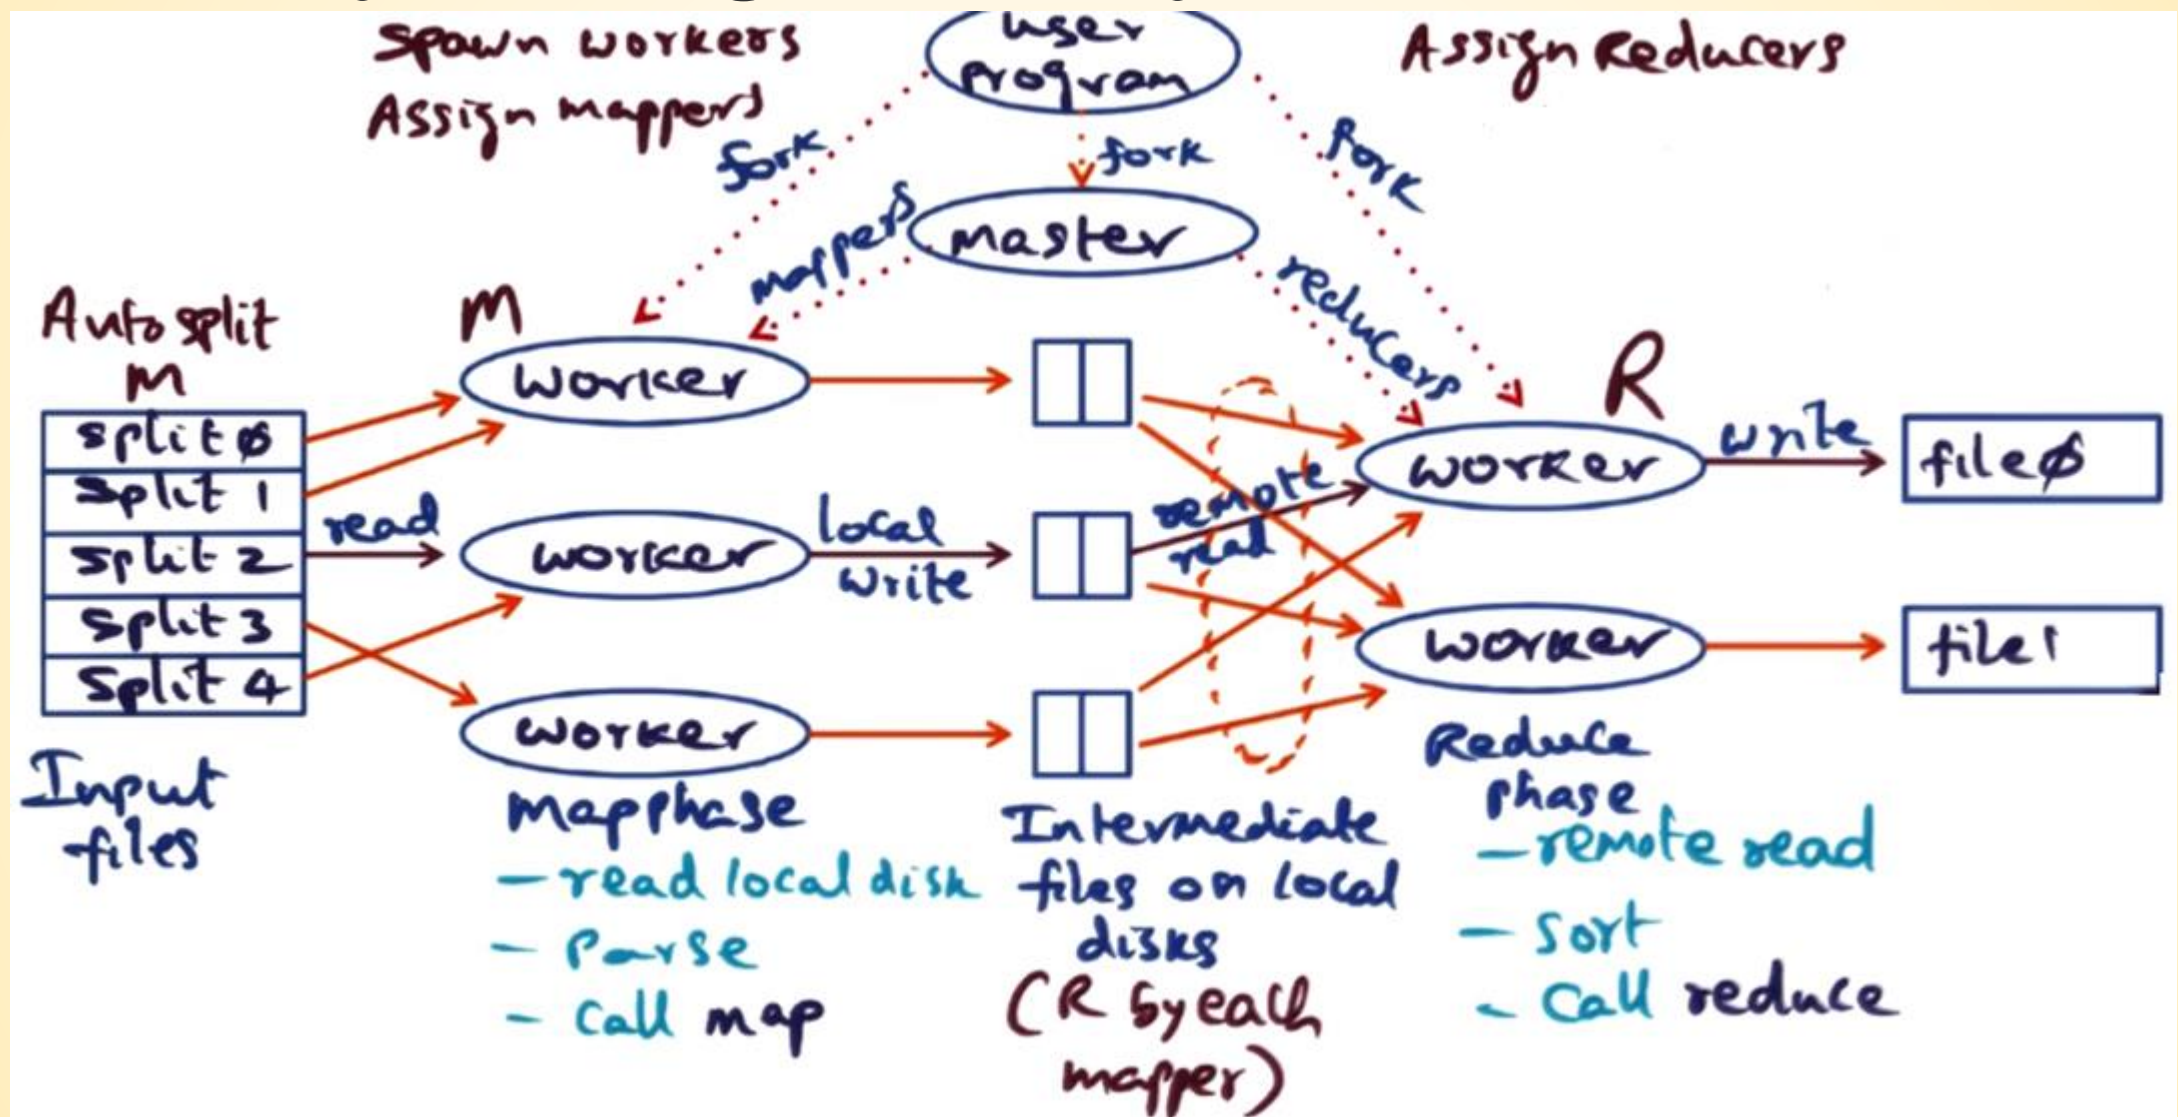 Spawn workers
Assign mappers
user
program
Assign Reducers
fork
fork
fork
mappers
master
reducers
Auto split
M
M
R
split 0
split 1
split 2
split 3
split 4
read
worker
worker
worker
local
write
remote
read
worker
worker
write
file 0
file 1
Input
files
Map phase
- read local disk
- Parse
- Call map
Intermediate
files on local
disks
(R by each
mapper)
Reduce
phase
- remote read
- Sort
- Call reduce